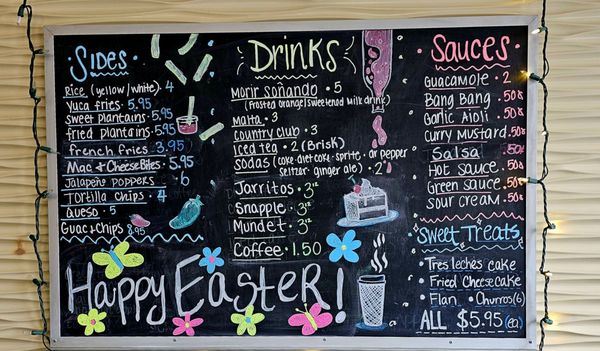 Sides
Rice (yellow/white) 4
Yuca fries • 5.95
sweet plantains • 5.95
fried plantains • 5.95
french fries • 3.95
Mac + Cheese Bites • 5.95
Jalapeño poppers • 6
Tortilla chips • 4
Queso • 5
Guac + chips 8.95
Drinks
Morir soñando • 5
(frosted orange/sweetened milk drink)
malta • 3
country club • 3
Iced tea • 2 (Brisk)
sodas (coke • diet coke • sprite • dr pepper
seltzer • ginger ale) • 2
Jarritos • 3
Snapple • 3
Mundet • 3
Coffee • 1.50
Sauces
Guacamole • 2
Bang Bang • .50¢
Garlic Aioli • .50¢
Curry Mustard • .50¢
Salsa • .50¢
Hot sauce • .50¢
Green sauce • .50¢
sour cream • .50¢
Sweet Treats
• Tres leches cake
• Fried Cheesecake
• Flan • Churros (6)
ALL $5.95 (ea)
Happy Easter!